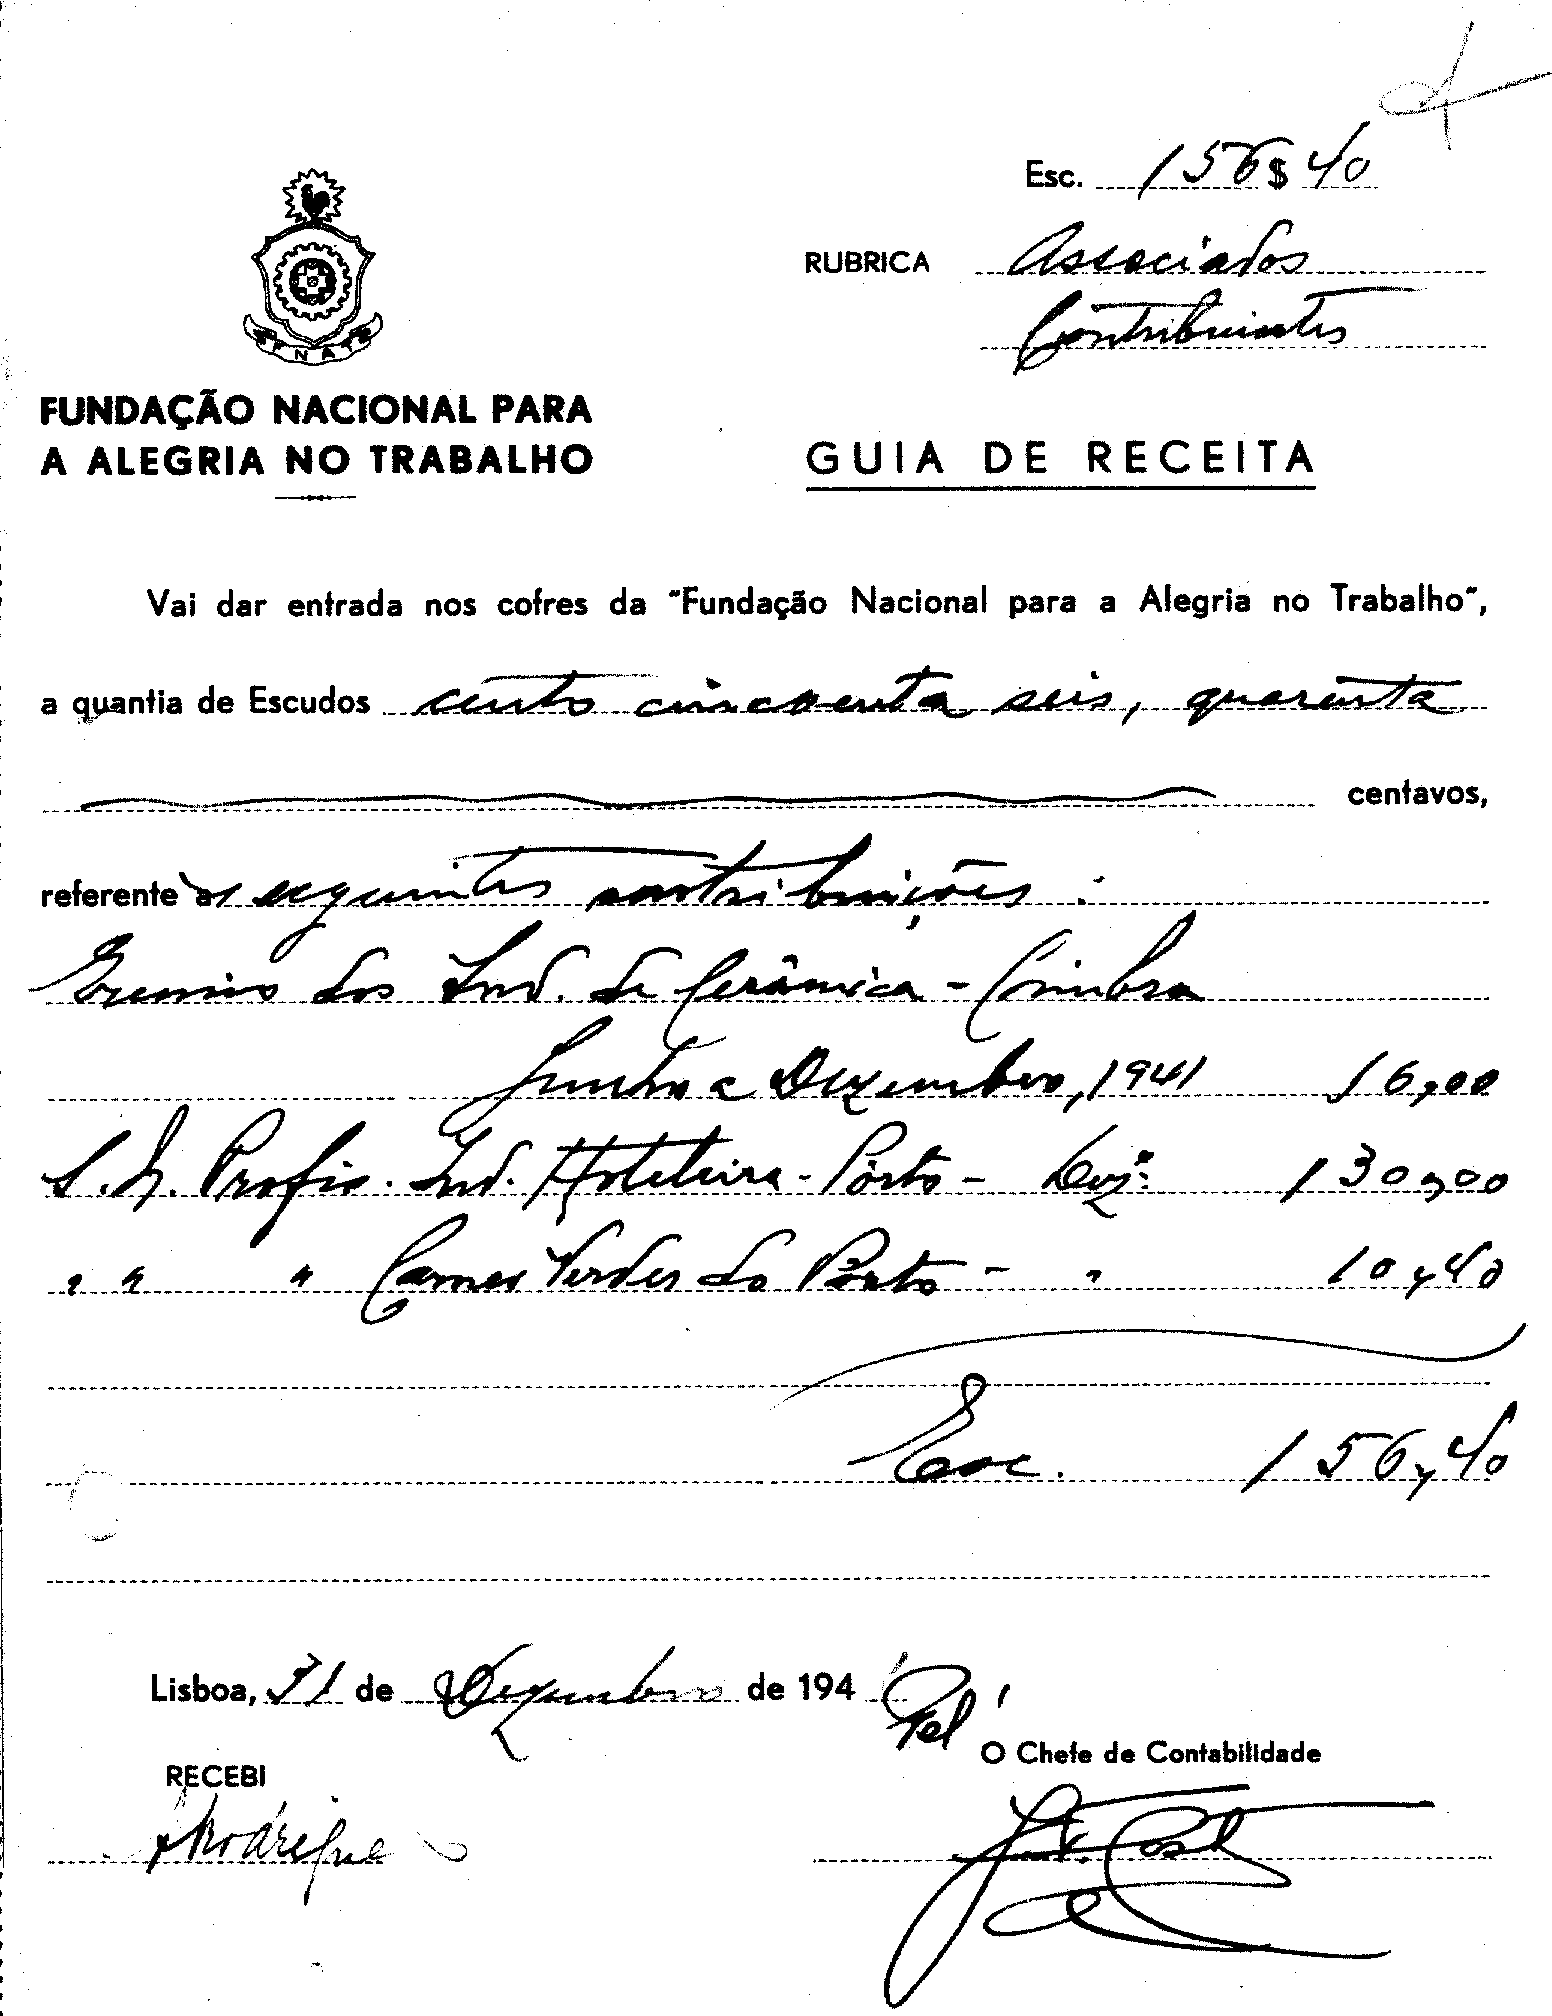 Esc. 156$40
RUBRICA Associados
Contribuintes
FNAT
FUNDAÇÃO NACIONAL PARA
A ALEGRIA NO TRABALHO
GUIA DE RECEITA
Vai dar entrada nos cofres da "Fundação Nacional para a Alegria no Trabalho",
a quantia de Escudos cento cincoenta seis, quarenta
centavos,
referente às seguintes contribuições:
Gremio dos Ind. de Cerâmica - Coimbra
Junho a Dezembro, 1941 16,00
S. N. Profis. Ind. Hoteleira - Pôrto - Dezº. 130,00
" " " Carnes Verdes do Porto - " 10,40
Esc. 156,40
Lisboa, 31 de Dezembro de 1941
Pel'
O Chefe de Contabilidade
RECEBI
Rodrigues
Costa